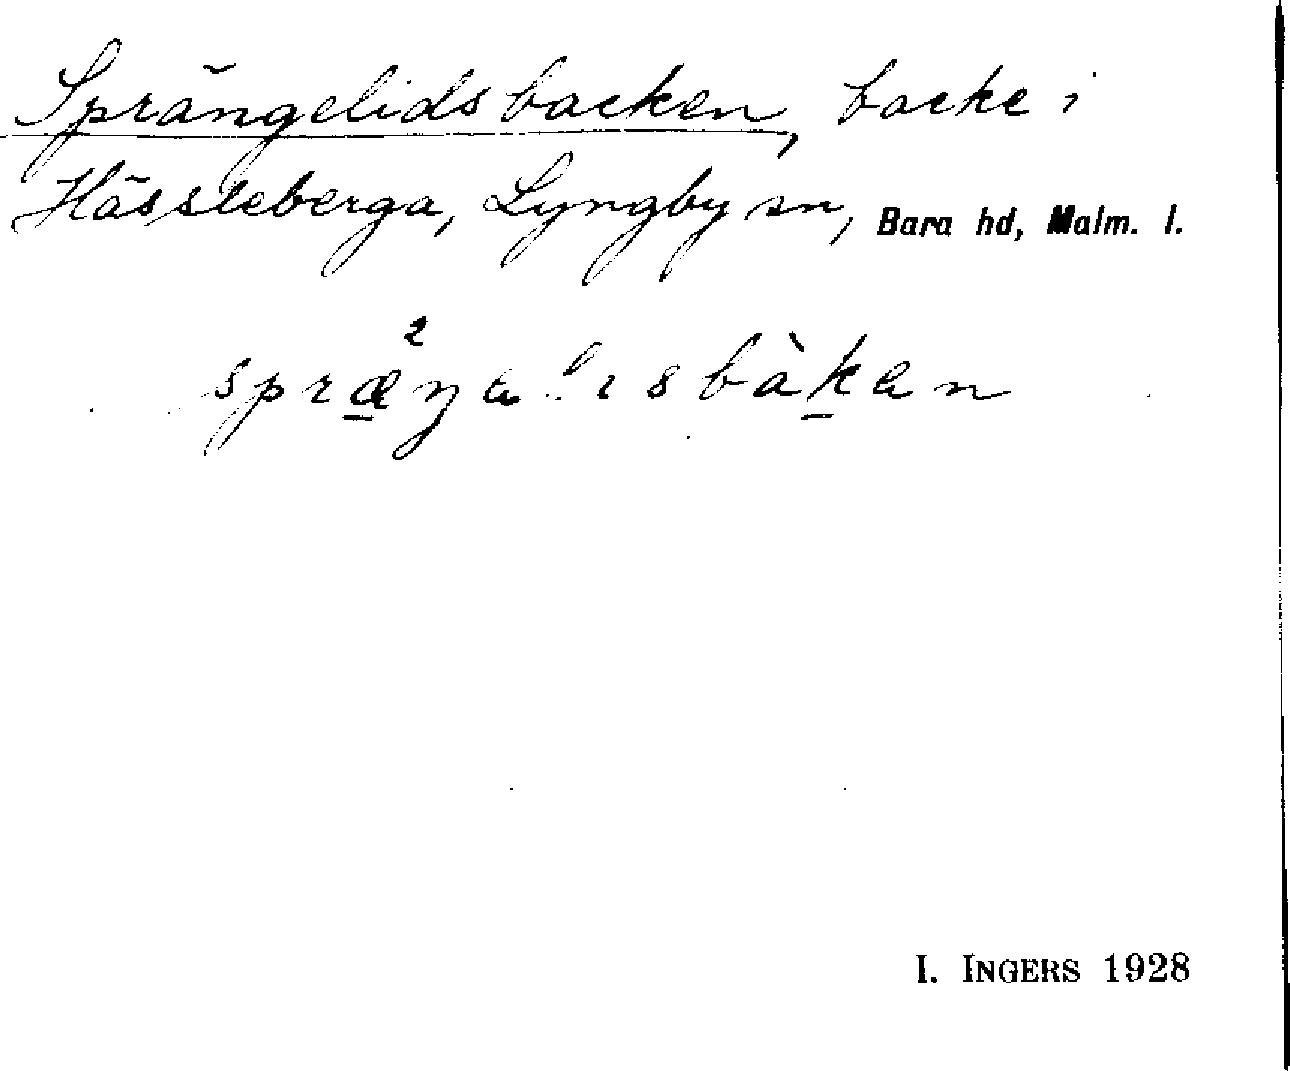 Sprängelidsbacken, backe i
Hässleberga, Lyngby sn, Bara hd, Malm. l.
spræ²ŋəlısbàkən
I. INGERS 1928